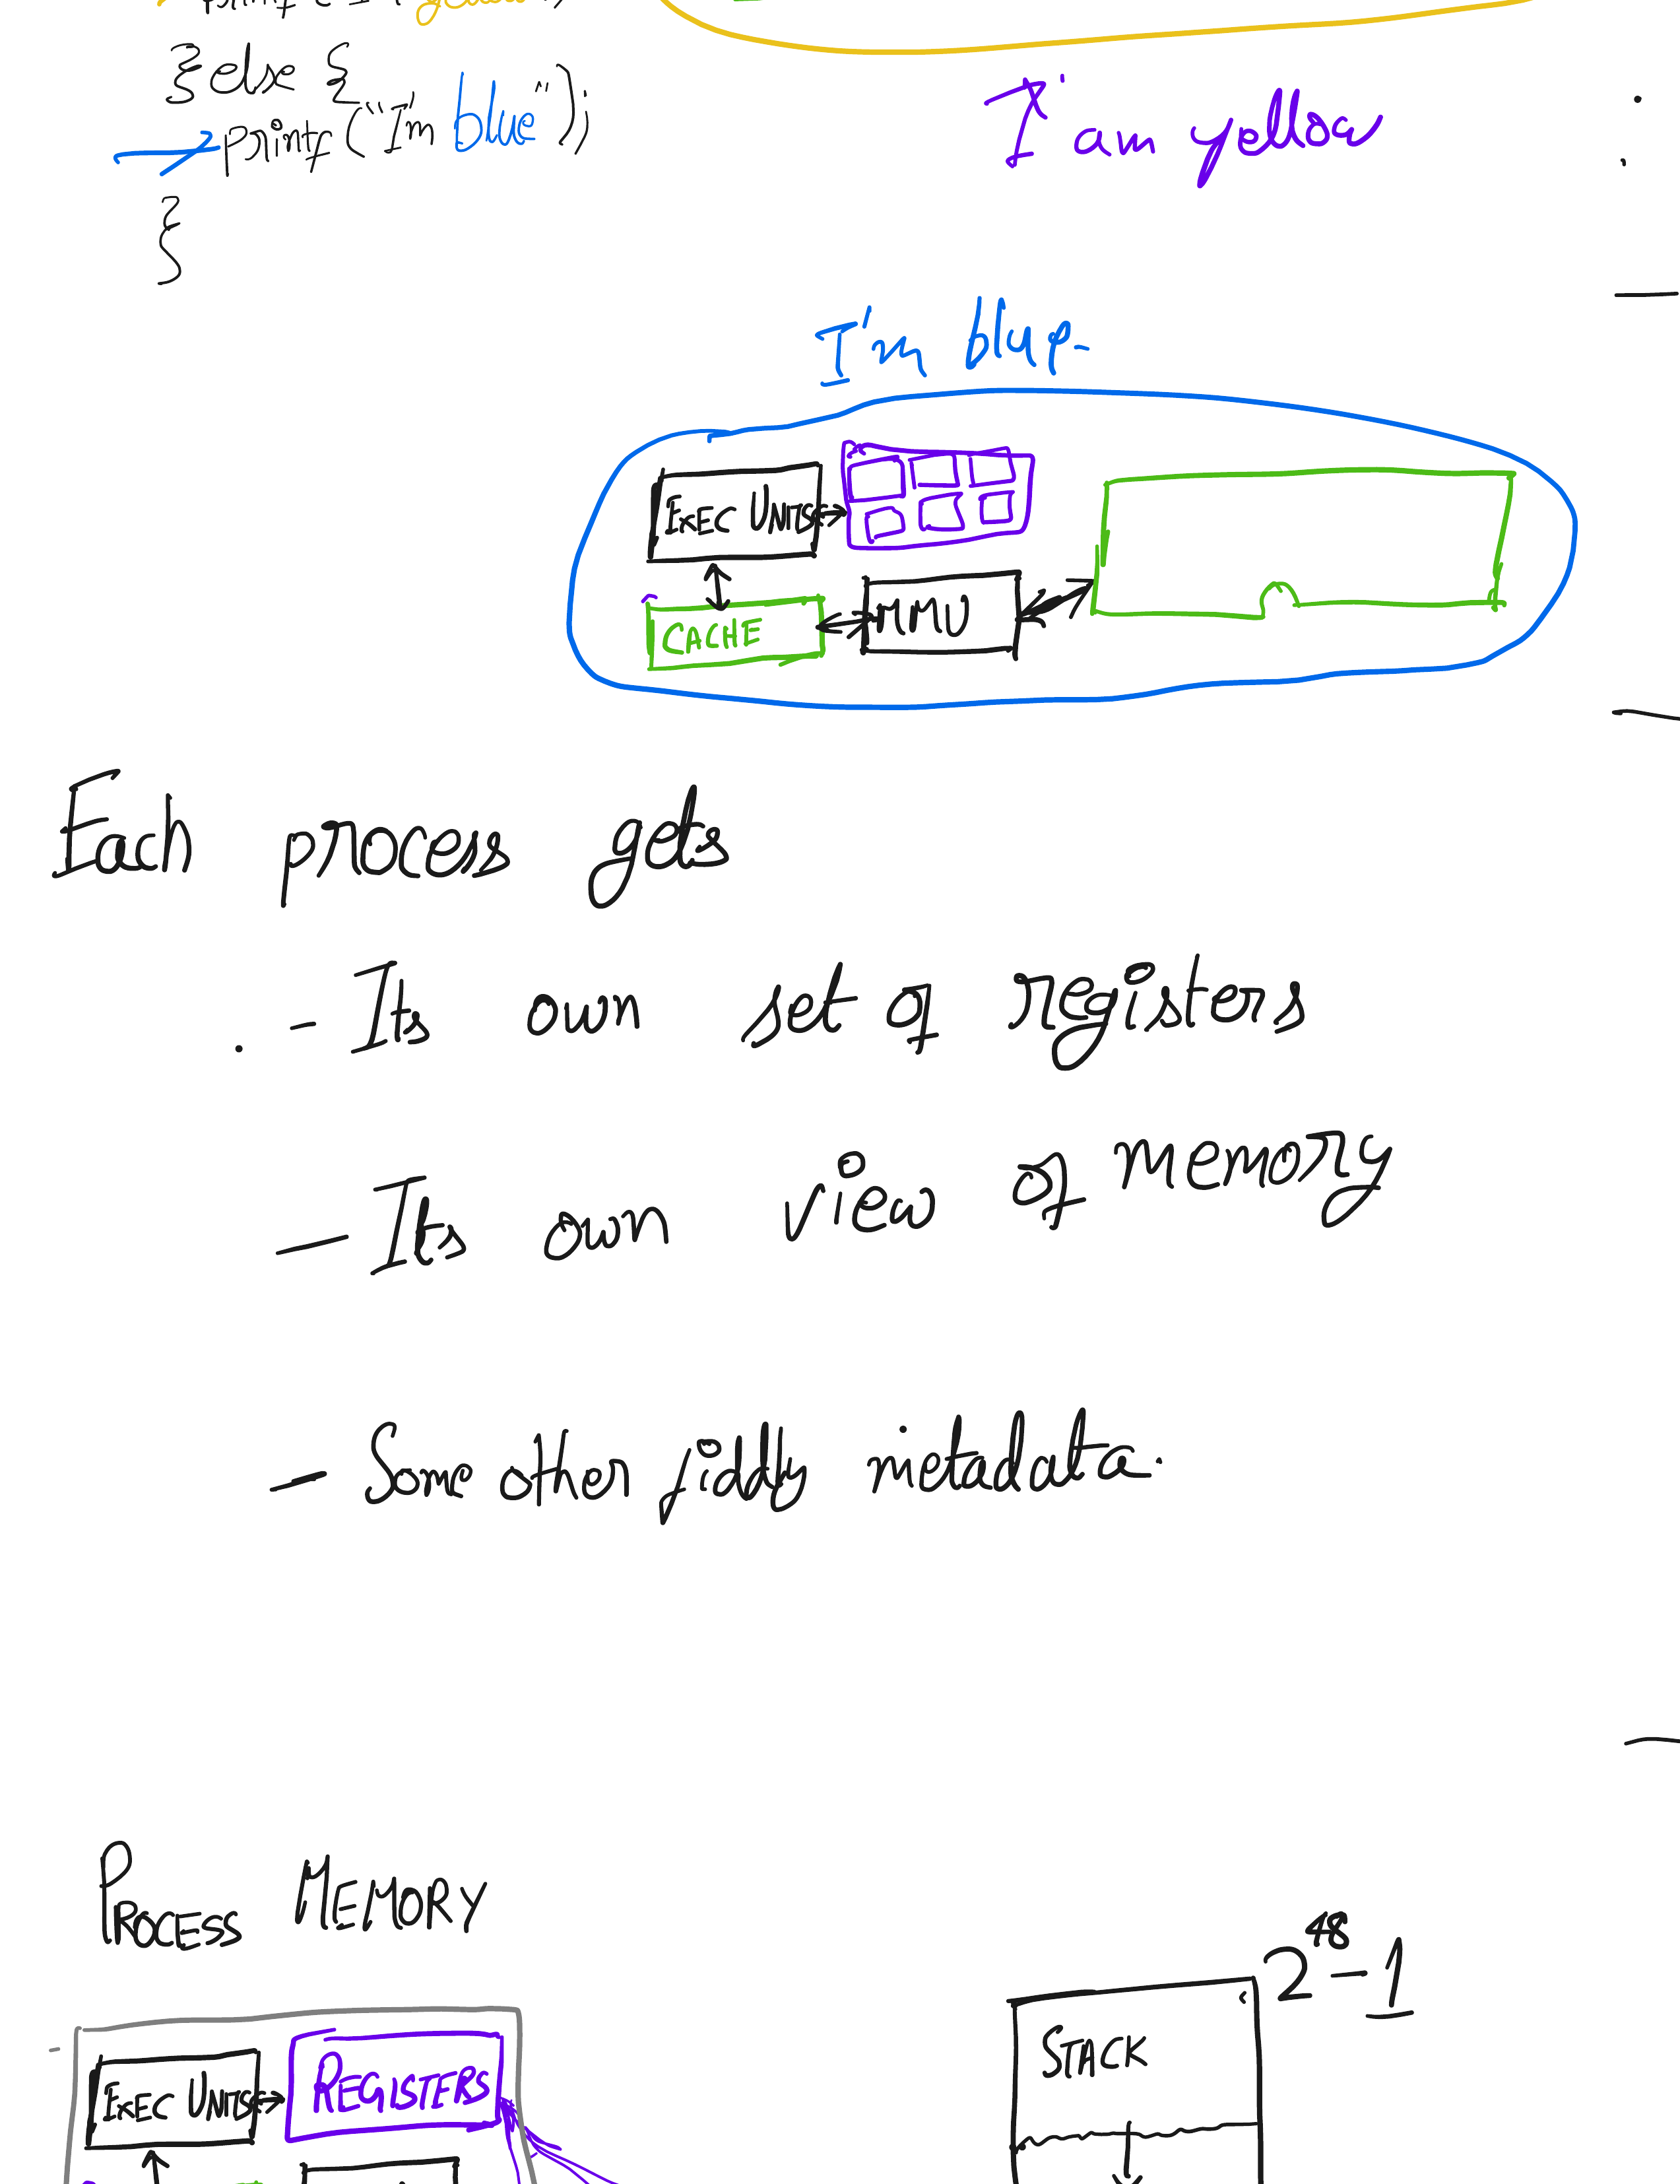 } else {
printf("I'm blue");
}
I am yellow
I'm blue.
EXEC UNITS
CACHE
MMU
Each process gets
- Its own set of registers
- Its own view of memory
- Some other fiddly metadata.
PROCESS MEMORY
2^48 - 1
STACK
EXEC UNITS
REGISTERS